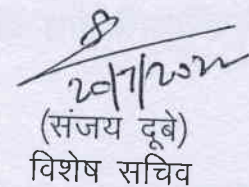 20/7/2022
(संजय दूबे)
विशेष सचिव